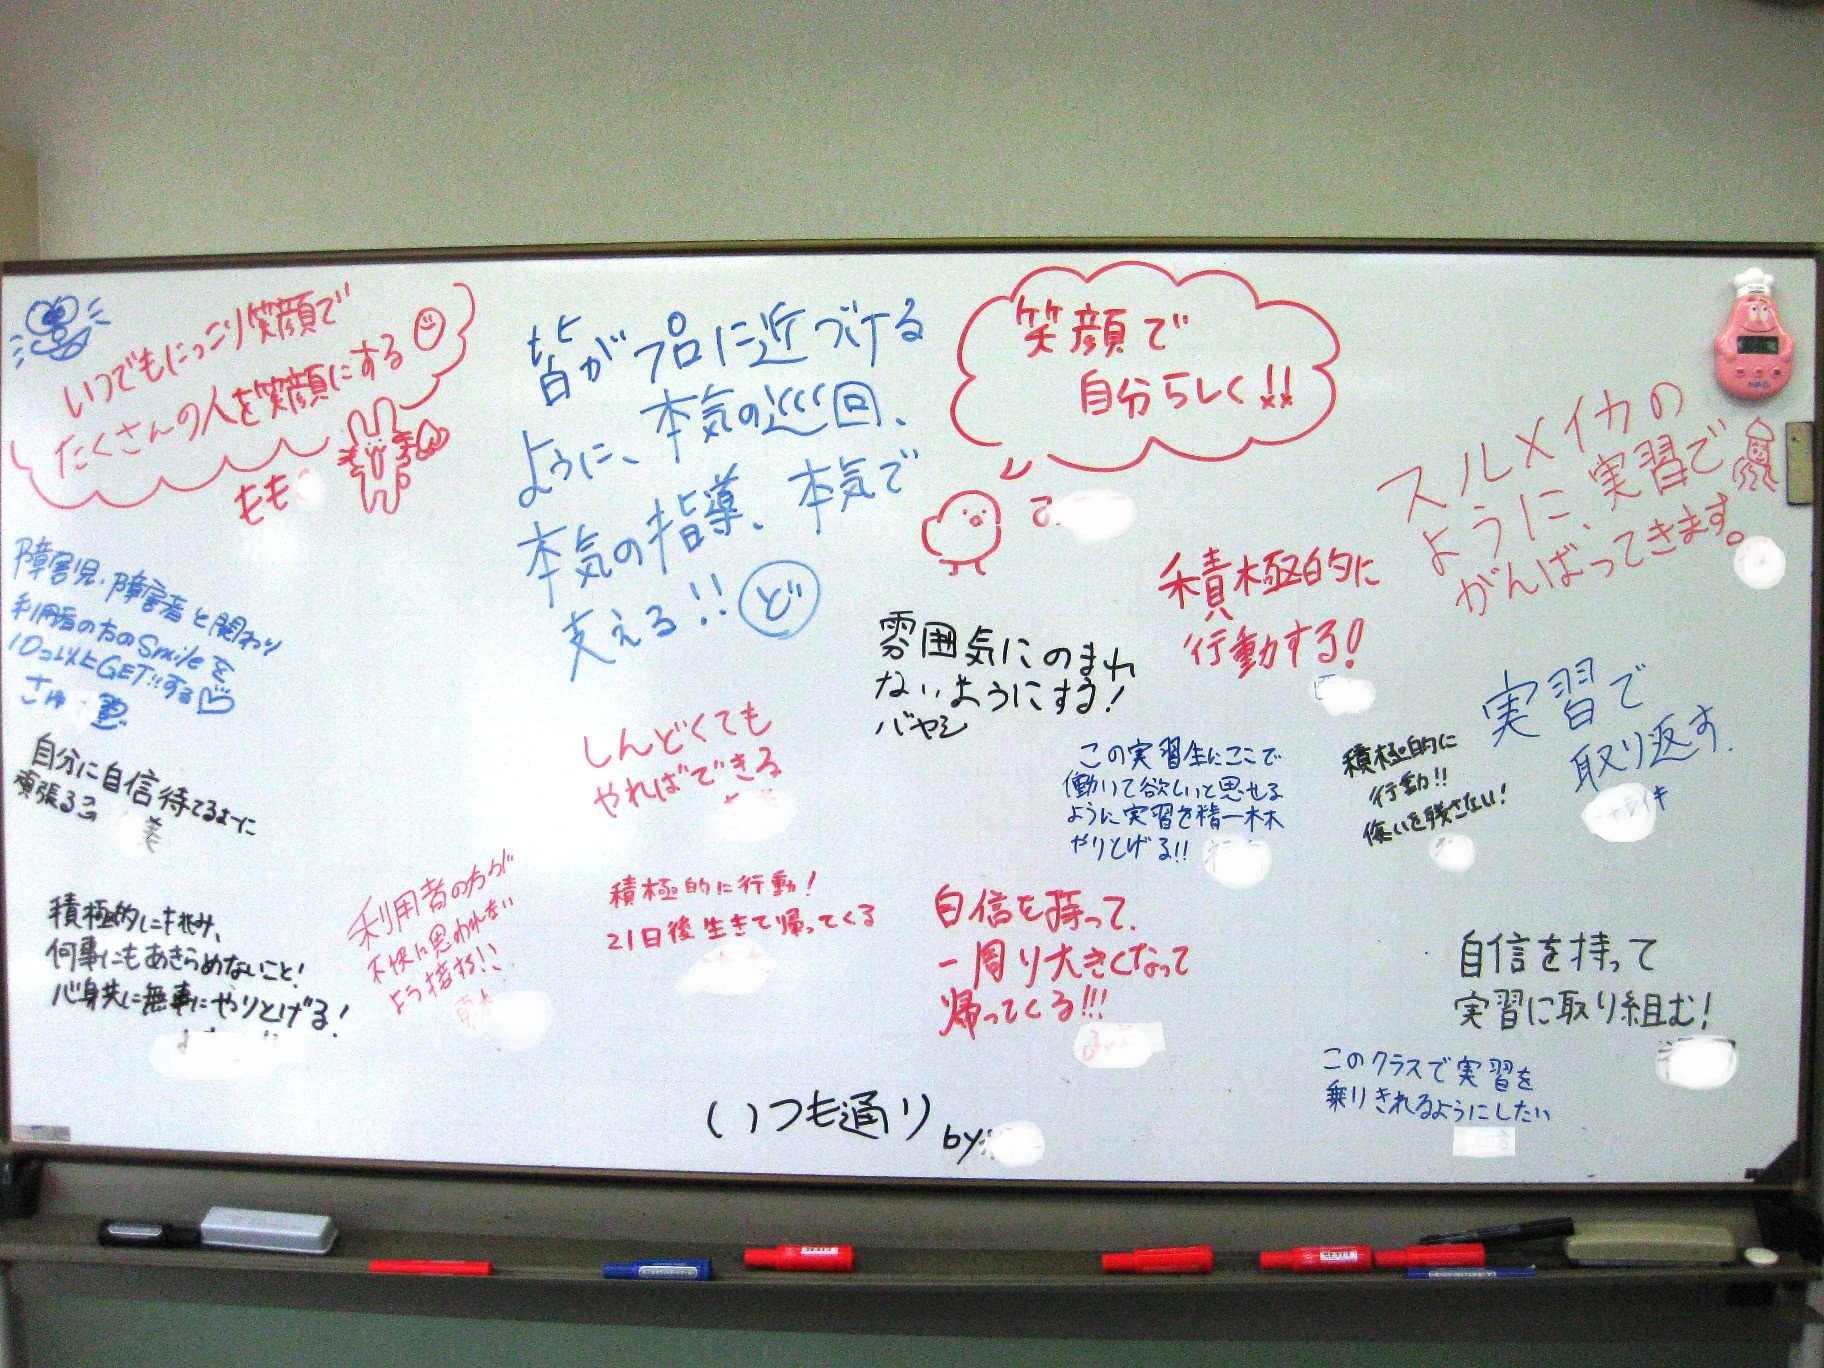 いつでもにっこり笑顔で
たくさんの人を笑顔にする
もも
皆がプロに近づける
ように、本気の巡回、
本気の指導、本気で
支える!! ど
笑顔で
自分らしく!!
スルメイカの
ように、実習で
がんばってきます。
障害児・障害者と関わり
利用者の方のSmileを
10コ以上GET!!する
さゆ
積極的に
行動する!
雰囲気にのまれ
ないようにする!
バヤシ
実習で
取り返す.
自分に自信待てるように
頑張る
美
しんどくても
やればできる
この実習生にここで
働いて欲しいと思せる
ように実習を精一杯
やりとげる!!
積極的に
行動!!
悔いを残さない!
積極的に挑み、
何事にもあきらめないこと!
心身共に無事にやりとげる!
利用者の方が
不快に思われない
よう接する!!
積極的に行動!
21日後生きて帰ってくる
自信を持って.
一周り大きくなって
帰ってくる!!!
自信を持って
実習に取り組む!
このクラスで実習を
乗りきれるようにしたい
いつも通り
by